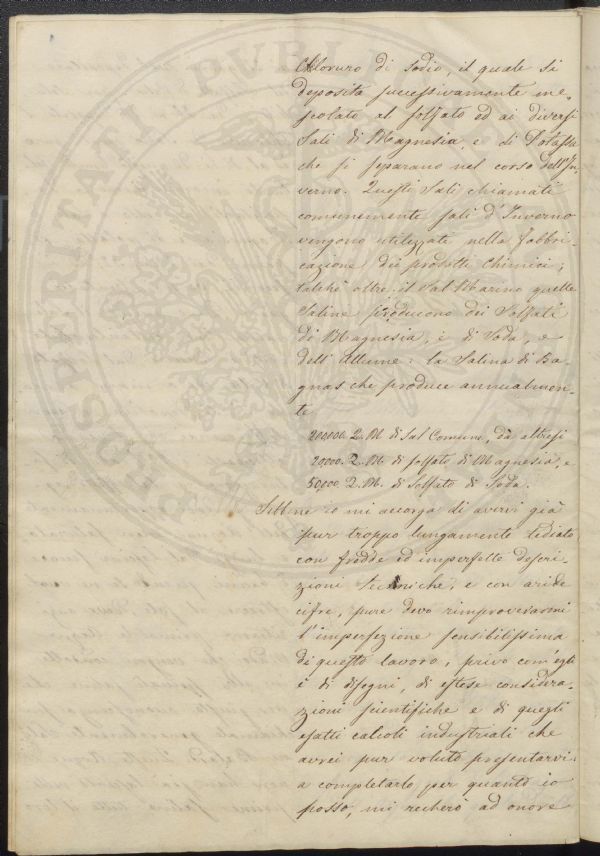 Cloruro di Sodio, il quale si
deposita successivamente me-
scolato al solfato ed ai diversi
Sali di Magnesia e di Potassa
che si separano nel corso dell'In-
verno. Questi Sali chiamati
comunemente sali d'Inverno
vengono utilizzati nella fabbri-
cazione dei prodotti chimici;
talchè oltre il Sal Marino quelle
Saline producono dei Solfati
di Magnesia, e di Soda, e
dell'Allume: la Salina di Ba-
gnas che produce annualmen-
te
200,000. Q. M. di Sal Comune, dà altresì
20,000. Q. M. di solfato di Magnesia, e
50,000. Q. M. di Solfato di Soda.
Sebbene io mi accorga di avervi già
pur troppo lungamente tediato
con fredde ed imperfette descri-
zioni tecniche, e con aride
cifre, pure devo rimproverarmi
l'imperfezione sensibilissima
di questo lavoro, privo com'egli
è di disegni, di estese considera-
zioni scientifiche e di quegli
esatti calcoli industriali che
avrei pur voluto presentarvi-
a completarlo per quanto io
posso, mi recherò ad onore
PVBLI
PROSPERITATI